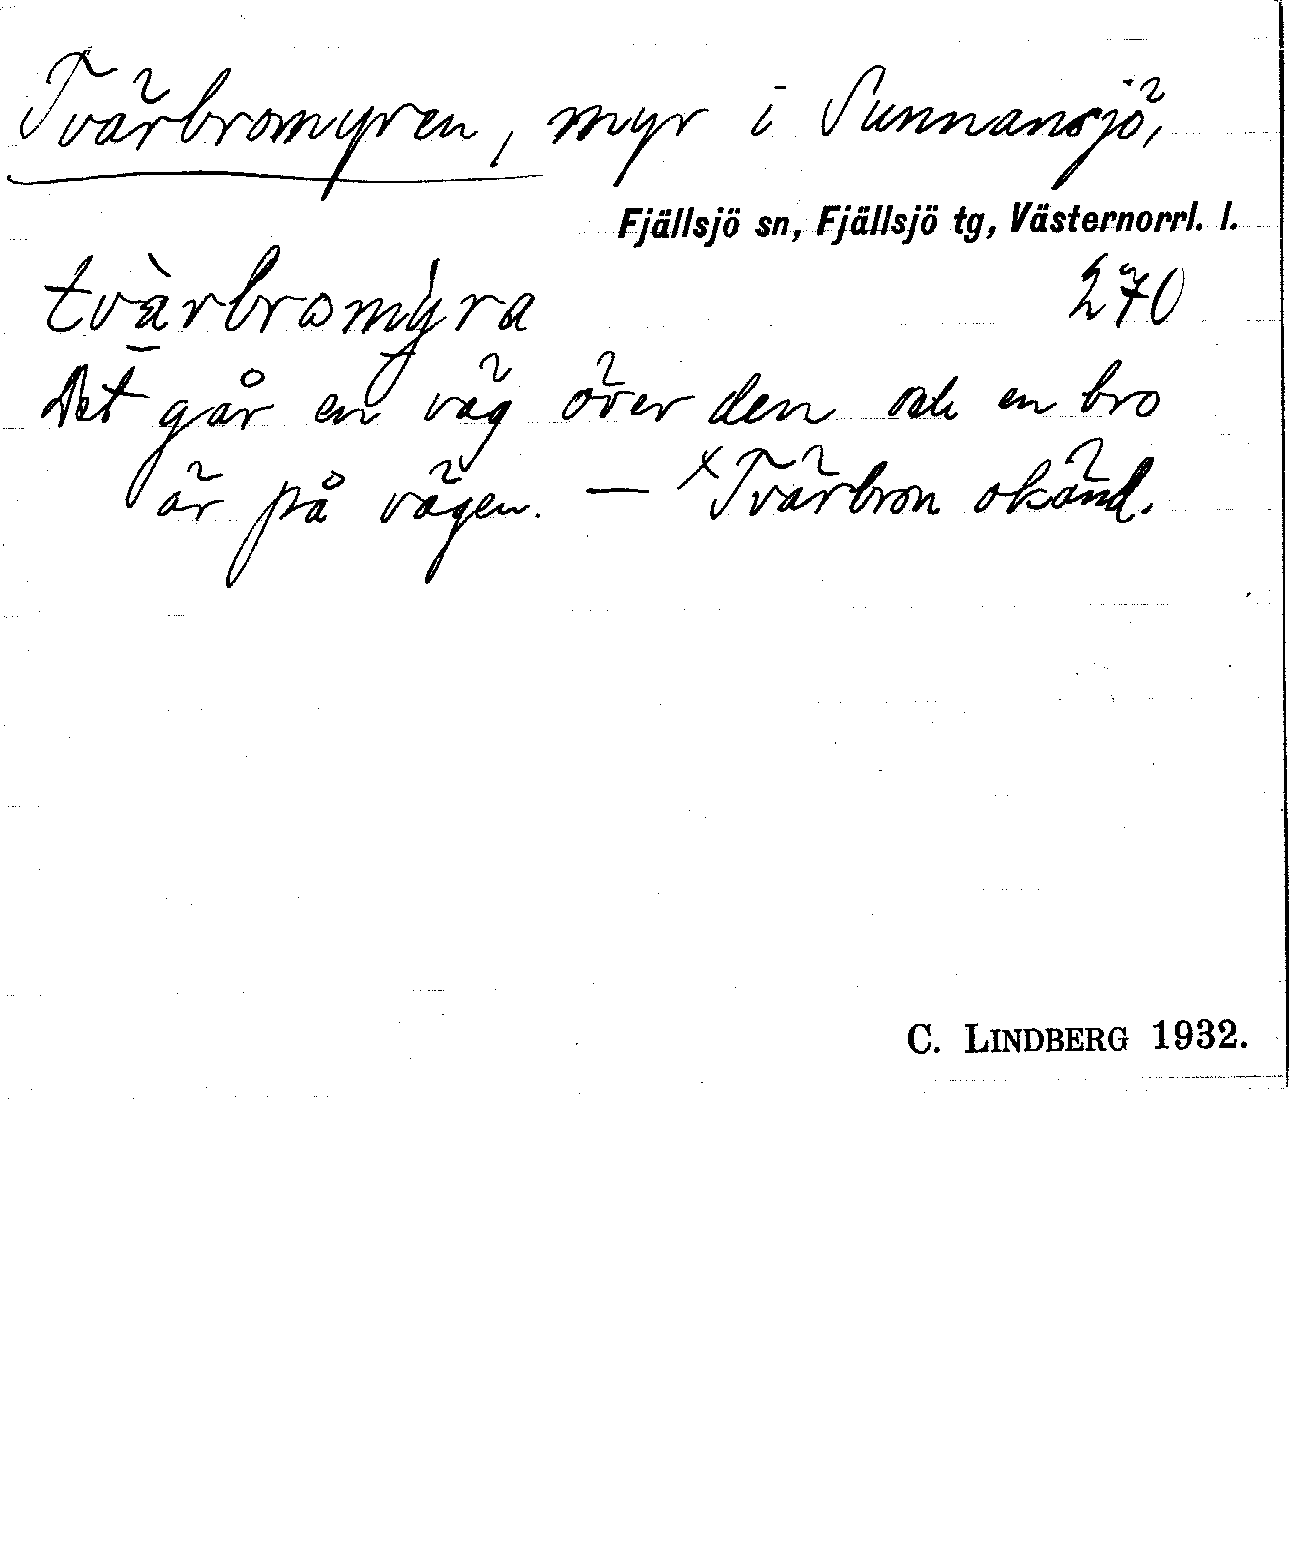 Tvärbromyren, myr i Sunnansjö,
Fjällsjö sn, Fjällsjö tg, Västernorrl. l.
tvàrbromýra 270
Det går en väg över den och en bro
är på vägen. — ˣTvärbron okänd.
C. LINDBERG 1932.